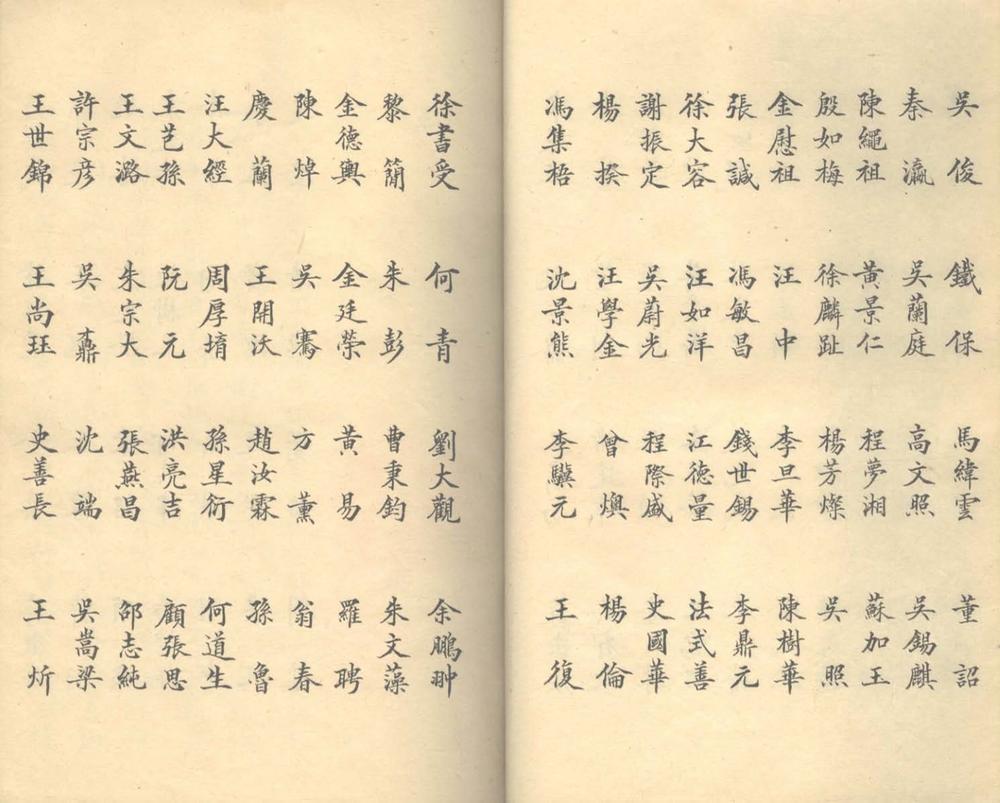 吳俊 鐵保 馬緯雲 董詔
秦瀛 吳蘭庭 高文照 吳錫麒
陳繩祖 黃景仁 程夢湘 蘇加玉
殷如梅 徐麟趾 楊芳燦 吳照
金慰祖 汪中 李旦華 陳樹華
張誠 馮敏昌 錢世錫 李鼎元
徐大容 汪如洋 江德量 法式善
謝振定 吳蔚光 程際盛 史國華
楊揆 汪學金 曾燠 楊倫
馮集梧 沈景熊 李驥元 王復
徐書受 何青 劉大觀 余鵬翀
黎簡 朱彭 曹秉鈞 朱文藻
金德輿 金廷榮 黃易 羅聘
陳焯 吳騫 方薰 翁春
慶蘭 王開沃 趙汝霖 孫魯
汪大經 周厚堉 孫星衍 何道生
王芑孫 阮元 洪亮吉 顧張思
王文潞 朱宗大 張燕昌 邵志純
許宗彥 吳鼒 沈端 吳嵩梁
王世錦 王尚玨 史善長 王炘